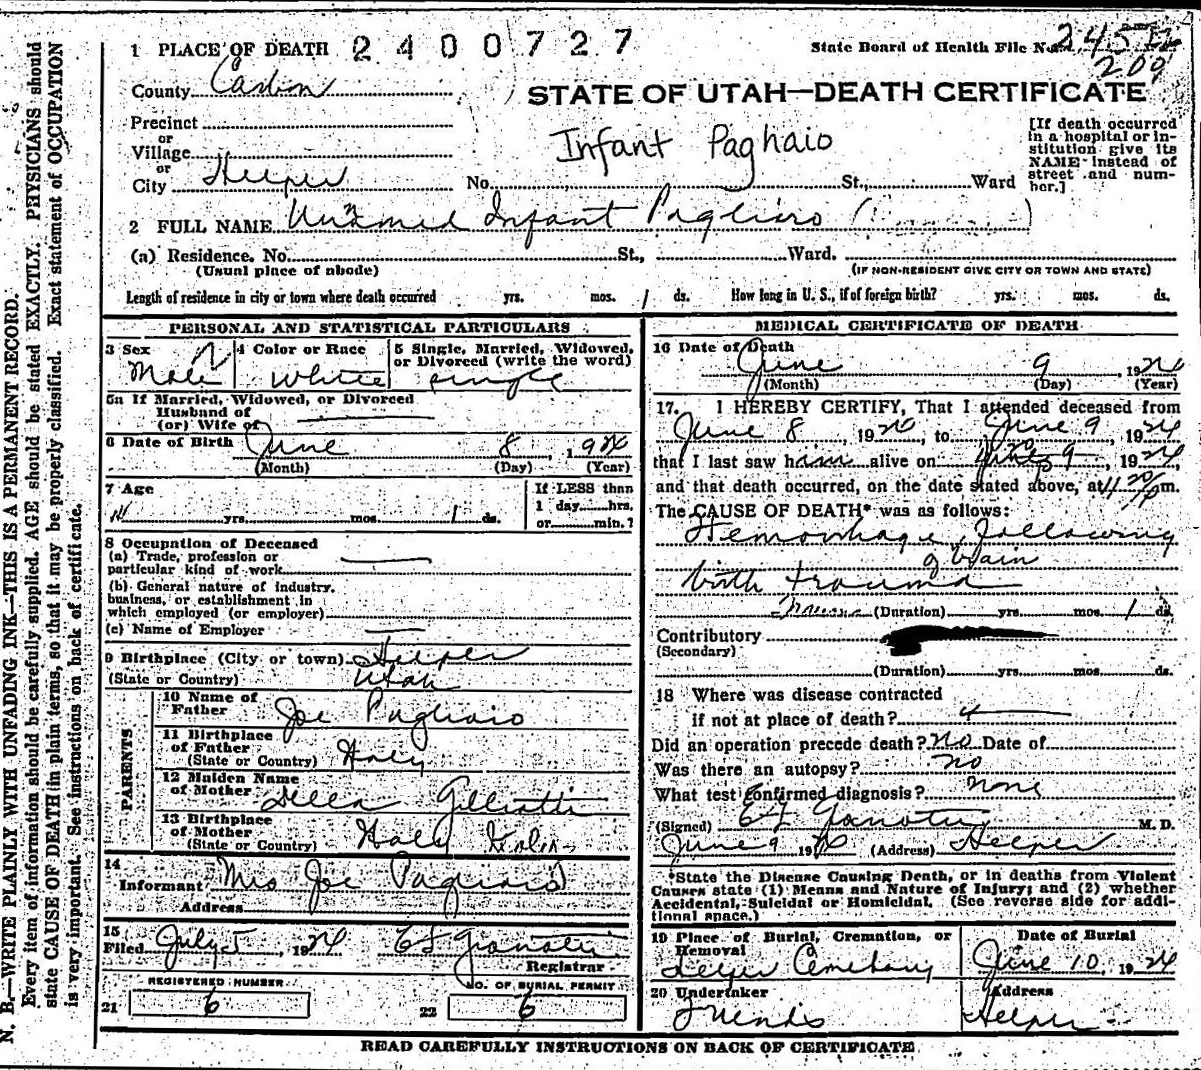 1 PLACE OF DEATH 2400727
State Board of Health File No. 245
209
County Carbon
STATE OF UTAH—DEATH CERTIFICATE
Precinct
or
Village
or
City Helper
Infant Paghaio
No. St., Ward
[If death occurred
in a hospital or in-
stitution give its
NAME instead of
street and num-
ber.]
2 FULL NAME Unnamed Infant Pagliaro
(a) Residence. No. St., Ward.
(Usual place of abode)
(IF NON-RESIDENT GIVE CITY OR TOWN AND STATE)
Length of residence in city or town where death occurred yrs. mos. 1 ds. How long in U. S., if of foreign birth? yrs. mos. ds.
PERSONAL AND STATISTICAL PARTICULARS
3 Sex
Male
4 Color or Race
White
5 Single, Married, Widowed,
or Divorced (write the word)
single
5a If Married, Widowed, or Divorced
Husband of
(or) Wife of
6 Date of Birth June 8, 1924
(Month) (Day) (Year)
7 Age
yrs. mos. 1 ds.
If LESS than
1 day hrs.
or min.?
8 Occupation of Deceased
(a) Trade, profession or
particular kind of work
(b) General nature of industry,
business, or establishment in
which employed (or employer)
(c) Name of Employer
9 Birthplace (City or town) Helper
(State or Country) Utah
PARENTS
10 Name of
Father Joe Pagliaro
11 Birthplace
of Father
(State or Country) Italy
12 Maiden Name
of Mother Della
13 Birthplace
of Mother
(State or Country) Italy
14
Informant Mrs Joe Pagliaro
Address
15
Filed July 5, 1924
Registrar
REGISTERED NUMBER
21 6
NO. OF BURIAL PERMIT
22 6
MEDICAL CERTIFICATE OF DEATH
16 Date of Death
June 9, 1924
(Month) (Day) (Year)
17. I HEREBY CERTIFY, That I attended deceased from
June 8, 1924, to June 9, 1924
that I last saw him alive on June 9, 1924,
and that death occurred, on the date stated above, at 11 pm.
The CAUSE OF DEATH* was as follows:
Hemorrhage, following
of brain
birth trauma
(Duration) yrs. mos. 1 ds.
Contributory
(Secondary)
(Duration) yrs. mos. ds.
18 Where was disease contracted
if not at place of death?
Did an operation precede death? no Date of
Was there an autopsy? no
What test confirmed diagnosis? none
(Signed) M. D.
June 9 1924 (Address) Helper
*State the Disease Causing Death, or in deaths from Violent
Causes state (1) Means and Nature of Injury; and (2) whether
Accidental, Suicidal or Homicidal. (See reverse side for addi-
tional space.)
19 Place of Burial, Cremation, or
Removal
Helper Cemetary
Date of Burial
June 10, 1924
20 Undertaker
Friends
Address
Helper
READ CAREFULLY INSTRUCTIONS ON BACK OF CERTIFICATE
N. B.—WRITE PLAINLY WITH UNFADING INK—THIS IS A PERMANENT RECORD.
Every item of information should be carefully supplied. AGE should be stated EXACTLY. PHYSICIANS should
state CAUSE OF DEATH in plain terms, so that it may be properly classified. Exact statement of OCCUPATION
is very important. See instructions on back of certificate.